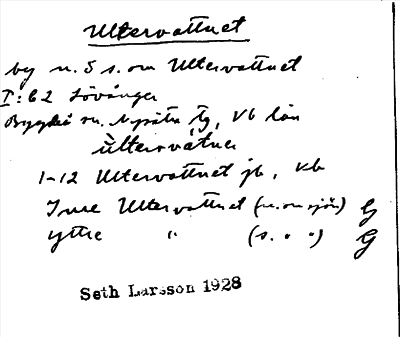 Ultervattnet
by n. S s. om Ultervattnet
I:62 Lövånger
Bygdeå sn. Nysätra tg, Vb län
ùltervátne
1-12 Ultervattnet jb, kb
Inre Ultervattnet (n. om sjön) G
yttre " (s. " ") G
Seth Larsson 1928